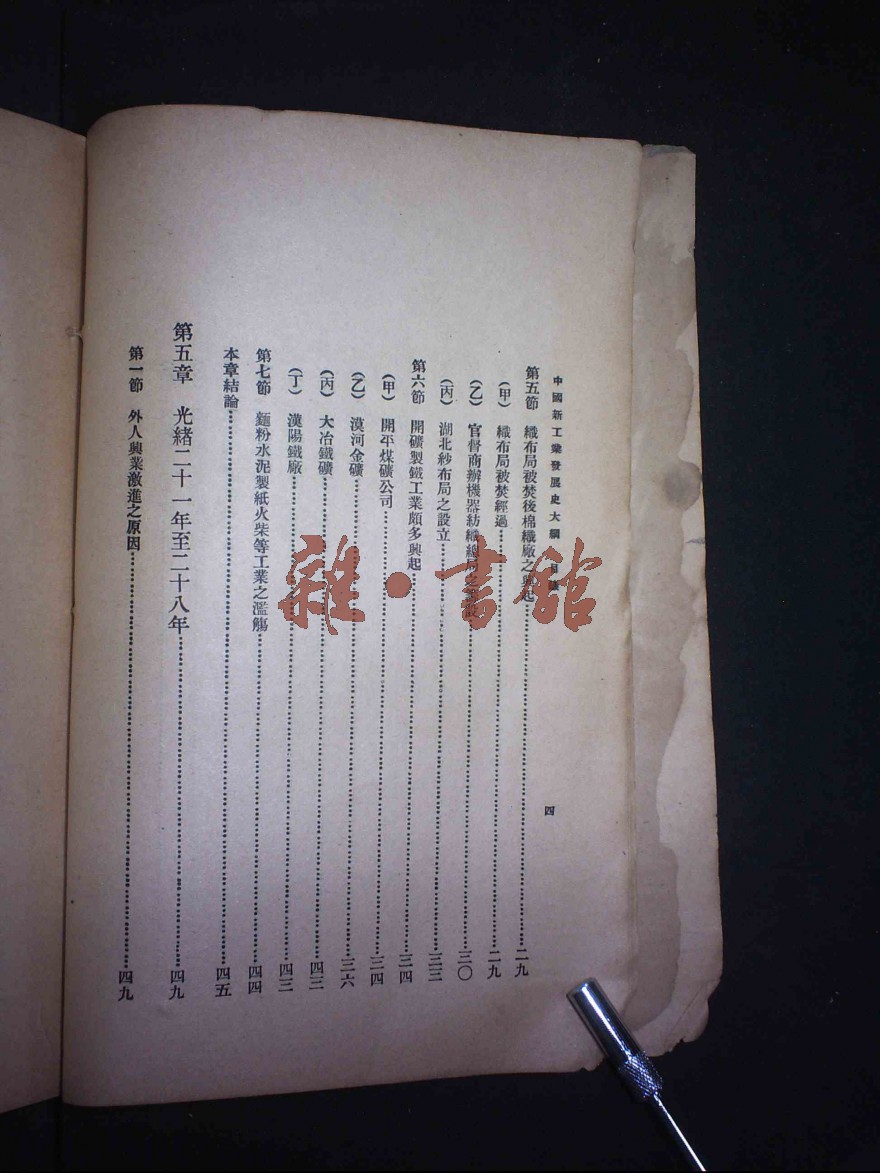 中國新工業發展史大綱 目錄
四
第五節 織布局被焚後棉織廠之興起……二九
(甲) 織布局被焚經過……二九
(乙) 官督商辦機器紡織總局之……三〇
(丙) 湖北紗布局之設立……三三
第六節 開礦製鐵工業頗多興起……三四
(甲) 開平煤礦公司……三四
(乙) 漠河金礦……三六
(丙) 大冶鐵礦……四三
(丁) 漢陽鐵廠……四三
第七節 麵粉水泥製紙火柴等工業之濫觴……四四
本章結論……四五
第五章 光緒二十一年至二十八年……四九
第一節 外人興業激進之原因……四九
雜·書館